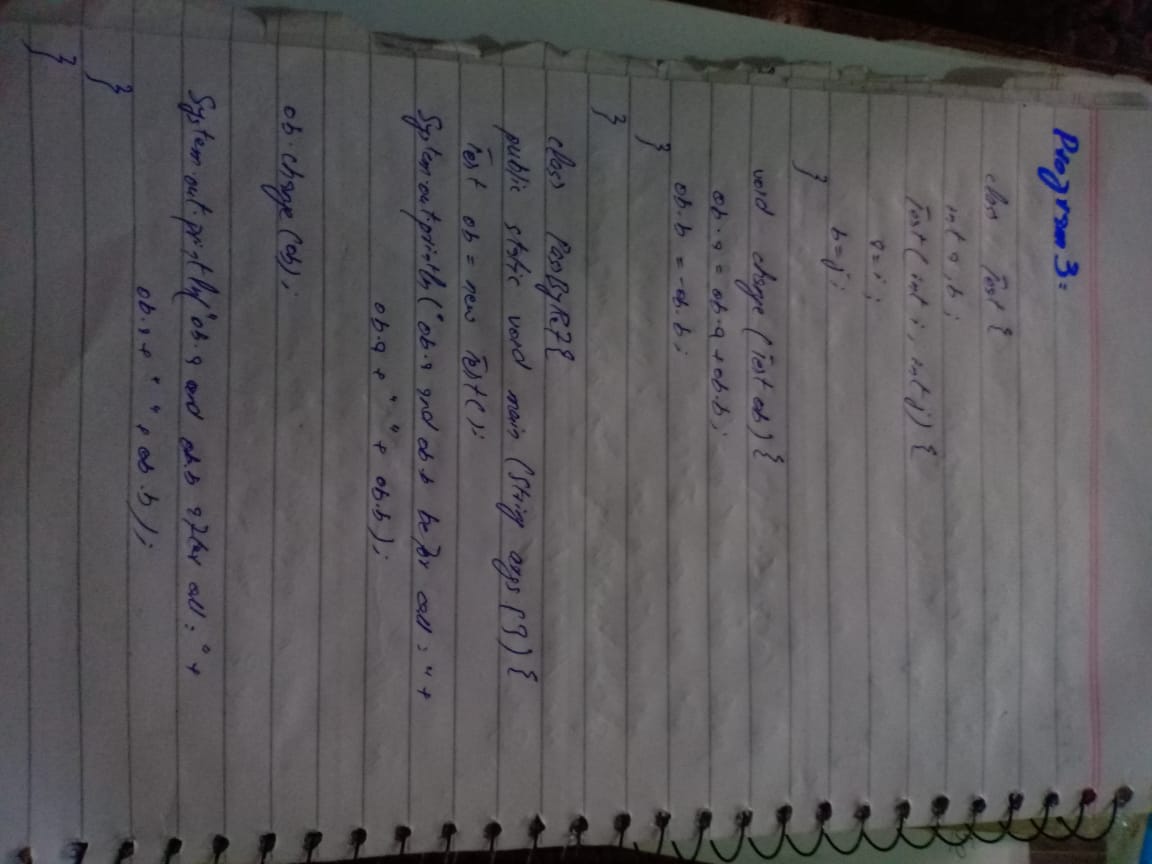 Program 3:
class Test {
int a, b;
Test (int i, int j) {
a = i;
b = j;
}
void change (Test ob) {
ob.a = ob.a + ob.b;
ob.b = -ob.b;
}
}
class PassByRef {
public static void main (String args []) {
Test ob = new Test ();
System.out.println ("ob.a and ob.b before call : " +
ob.a + " " + ob.b);
ob.change (ob);
System.out.println ("ob.a and ob.b after call : " +
ob.a + " " + ob.b);
}
}